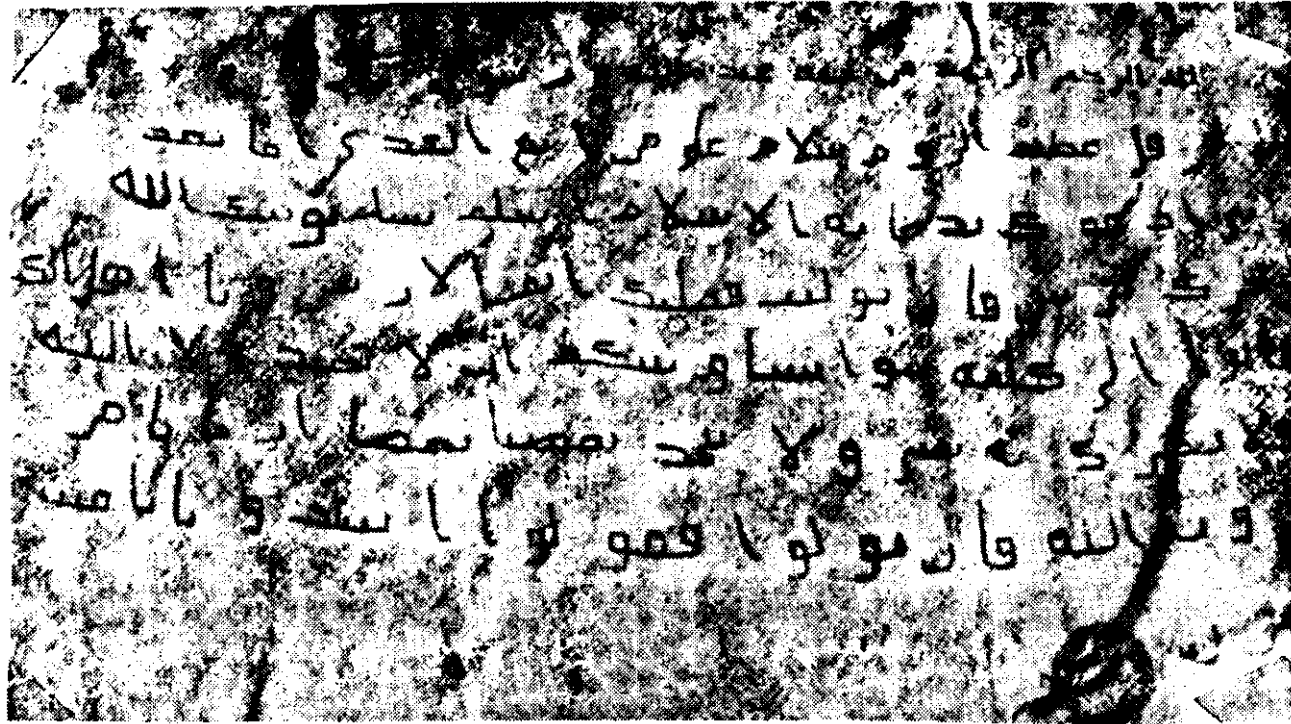 الله الرحمن الرحيم من محمد عبد الله
هرقل عظيم الروم سلام على من اتبع الهدى اما بعد
ادعوك بدعاية الاسلام اسلم تسلم يوتك الله
مرتين فان توليت فعليك اثم الاريسين ويا اهل الك
تعالوا الى كلمة سوا بيننا وبينكم الا نعبد الا الله
ولا نشرك به شيا ولا يتخذ بعضنا بعضا اربابا من
دون الله فان تولوا فقولوا اشهدوا بانا مسـ